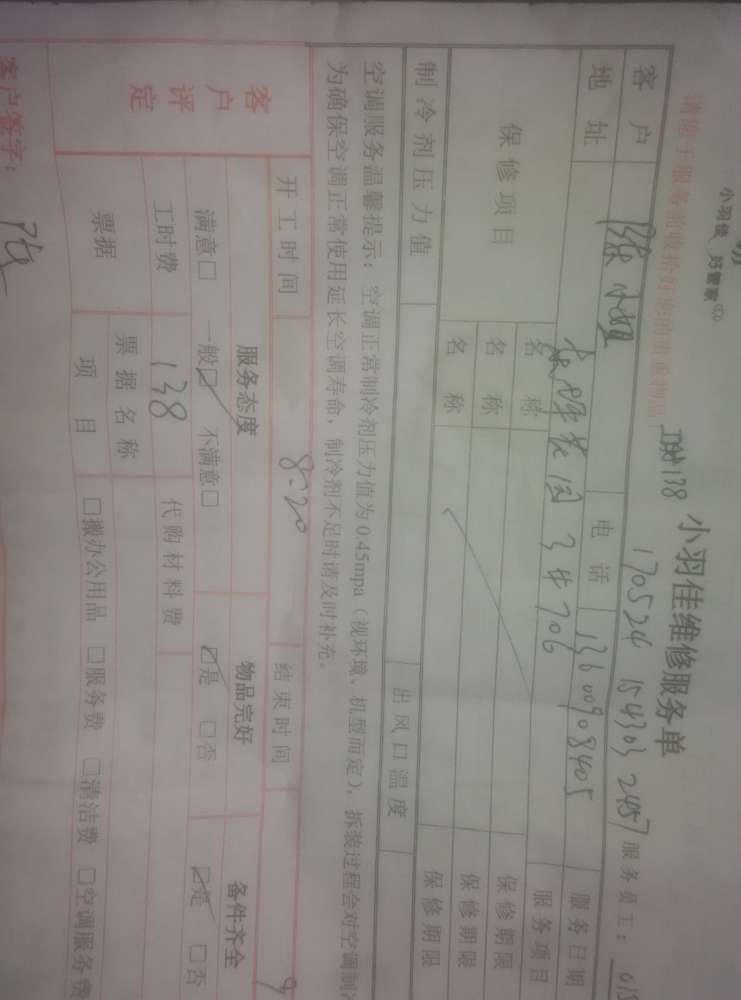 小羽佳 好管家
请您于服务前收拾好您的贵重物品
138 小羽佳维修服务单
170524 154303 2457 服务员工:
客户 陈小姐 电话 13600908405 服务日期
地址 花园3#706 服务项目
保修项目 名称 保修期限
名称 保修期限
名称 保修期限
制冷剂压力值 出风口温度
空调服务温馨提示:空调正常制冷剂压力值为0.45mpa(视环境、机型而定),拆装过程会对空调制冷
为确保空调正常使用延长空调寿命,制冷剂不足时请及时补充。
开工时间 8:20 结束时间 9
客户评定 服务态度 物品完好 备件齐全
满意□ 一般☑ 不满意□ ☑是 □否 ☑是 □否
工时费 138 代购材料费
票据 票据名称
项目 □搬办公用品 □服务费 □清洁费 □空调服务费
客户签字: 陈